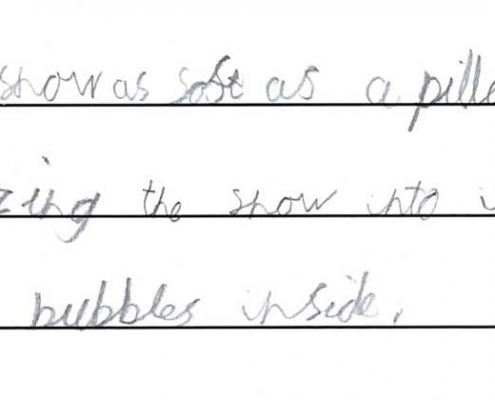 snow as soft as a pille
zing the snow into i
bubbles inside,